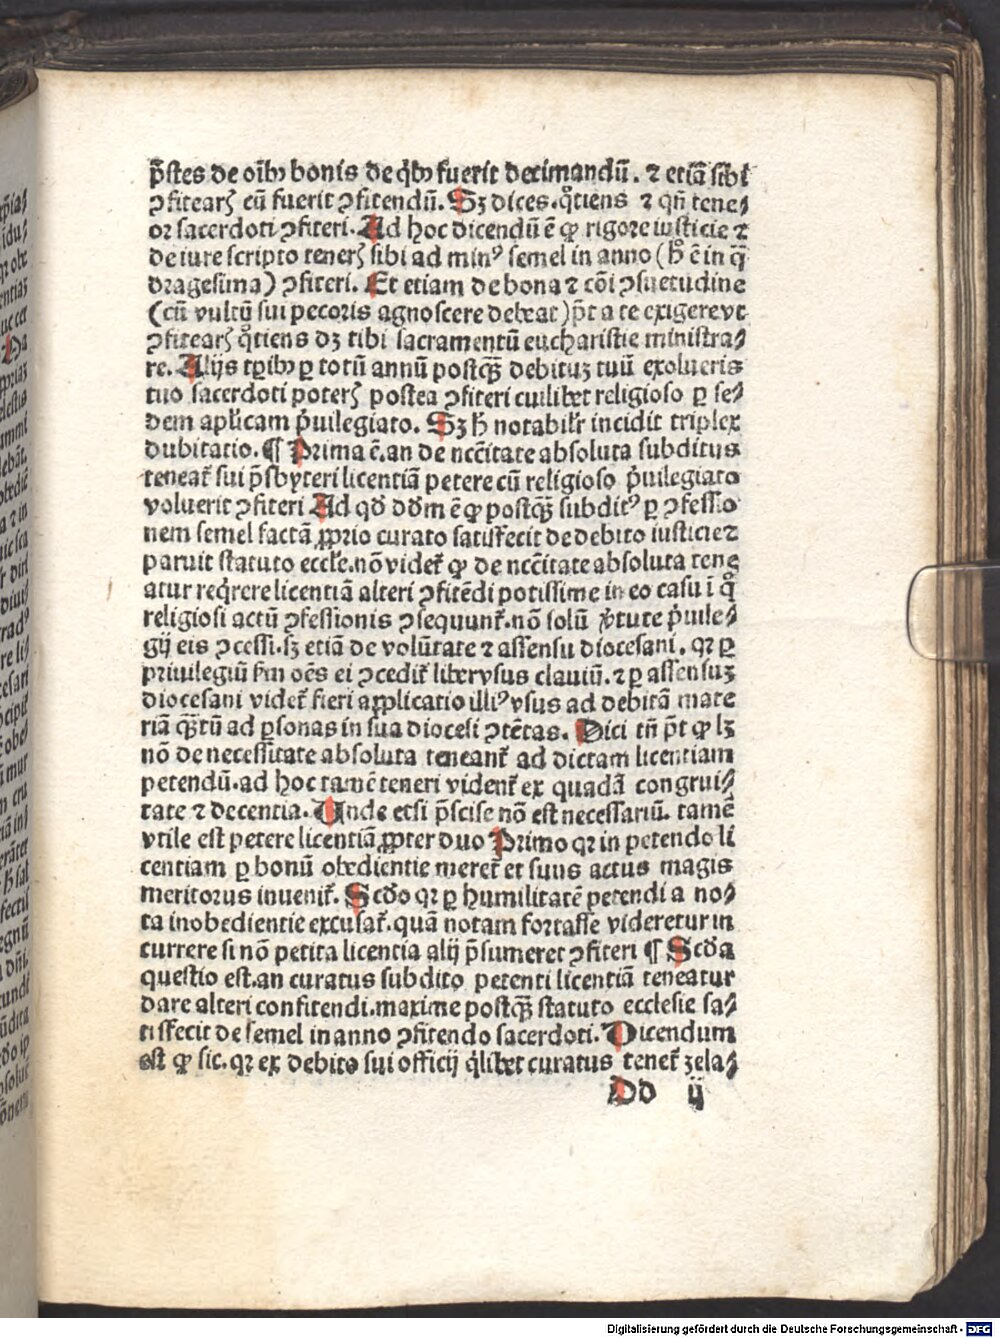 p̄stes de oībꝫ bonis de qͥbꝫ fuerit decimandū. ⁊ etiā sibi
ꝯfitearꝭ eū fuerit ꝯfitendū. Sꝫ dices. qͦtiens ⁊ qn̄ tene⸗
or sacerdoti ꝯfiteri. Ad hoc dicendū ē ꝙ rigore iusticie ⁊
de iure scripto tenerꝭ sibi ad minꝰ semel in anno (hͦ ē in q̄
dragesima) ꝯfiteri. Et etiam de bona ⁊ cōi ꝯsuetudine
(cū vultū sui pecoris agnoscere debeat) pn̄t a te exigere vt
ꝯfitearꝭ qͦtiens dꝫ tibi sacramentū eucharistie ministra⸗
re. Alijs tꝑibꝫ ꝑ totū annū postqꝫ̄ debituꝫ tuū exolueris
tuo sacerdoti poterꝭ postea ꝯfiteri cuilibet religioso ꝑ se⸗
dem aplicam p̄uilegiato. Sꝫ hͦ notabilr̄ incidit triplex
dubitatio. ¶ Prima ē. an de nccītate absoluta subditus
teneat᷑ sui p̄sbyteri licentiā petere cū religioso p̄uilegiato
voluerit ꝯfiteri Ad qđ dđm ē ꝙ postqꝫ̄ subditꝰ ꝑ ꝯfessio
nem semel factā ꝓprio curato satisfecit de debito iusticie ⁊
paruit statuto eccle̅. nō videt᷑ ꝙ de nccītate absoluta tene
atur reqͥrere licentiā alteri ꝯfitēdi potissime in eo casu ī qͦ
religiosi actū ꝯfessionis ꝯsequunt᷑. nō solū v̓tute p̄uile⸗
gij eis ꝯcessi. sꝫ etiā de volūtate ⁊ assensu diocesani. qꝛ ꝑ
priuilegiū fm oēs ei ꝯcedit᷑ liber vsus clauiū. ⁊ ꝑ assensuꝫ
diocesani videt᷑ fieri applicatio illiꝰ vsus ad debitā mate
riā qꝫ̄tū ad ꝑsonas in sua diocesi ꝯtētas. Dici tn̄ pn̄t ꝙ lꝫ
nō de necessitate absoluta teneant᷑ ad dictam licentiam
petendū. ad hoc tamē teneri vident᷑ ex quadā congrui⸗
tate ⁊ decentia. Unde etsi p̄scise nō est necessariū. tamē
vtile est petere licentiā ꝓpter duo Primo qꝛ in petendo li
centiam ꝑ bonū obedientie meret᷑ et suus actus magis
meritorus inuenit᷑. Scđo qꝛ ꝑ humilitatē petendi a no⸗
ta inobedientie excusat᷑. quā notam fortasse videretur in
currere si nō petita licentia alij p̄sumeret ꝯfiteri ¶ Scđa
questio est. an curatus subdito petenti licentiā teneatur
dare alteri confitendi. maxime postqꝫ̄ statuto ecclesie sa⸗
tisfecit de semel in anno ꝯfitendo sacerdoti. Dicendum
est ꝙ sic. qꝛ ex debito sui officij qͥlibet curatus tenet᷑ zela⸗
Dd ij
Digitalisierung gefördert durch die Deutsche Forschungsgemeinschaft - DFG